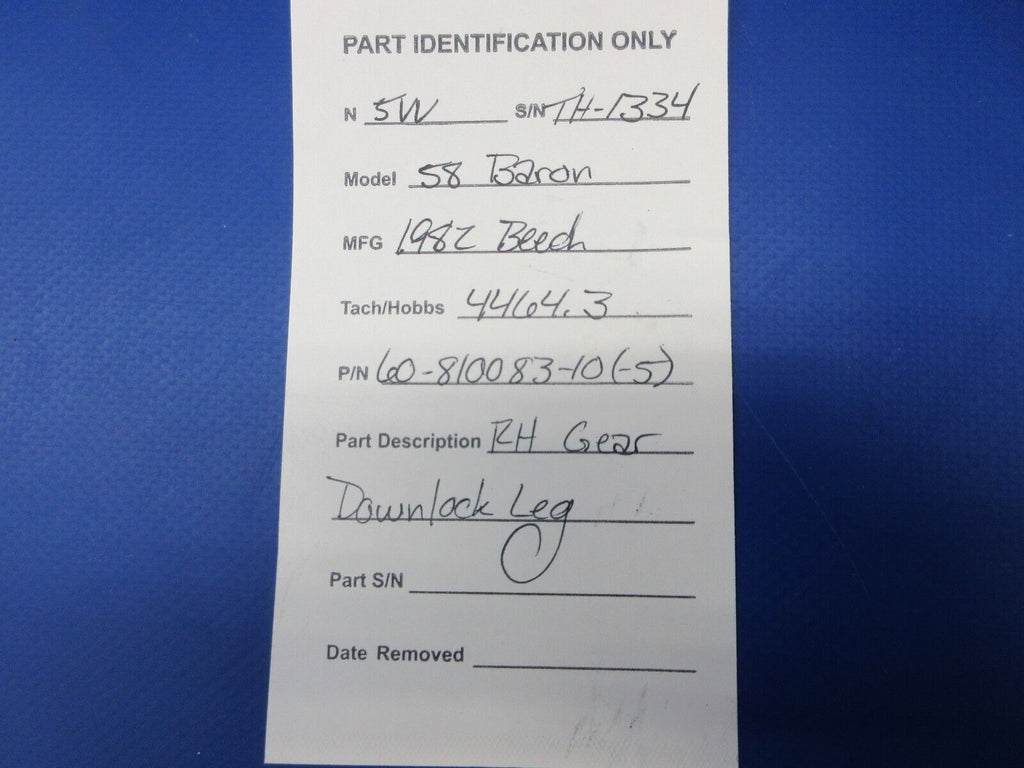 PART IDENTIFICATION ONLY
N 5W S/N TH-1334
Model 58 Baron
MFG 1982 Beech
Tach/Hobbs 4464.3
P/N 60-810083-10(-5)
Part Description RH Gear
Downlock Leg
Part S/N
Date Removed